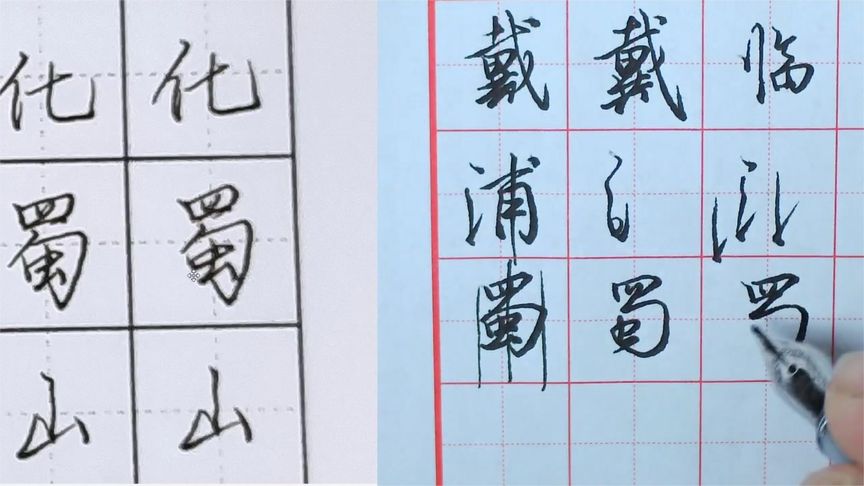 化 化
蜀 蜀
山 山
戴 戴 临
浦
蜀